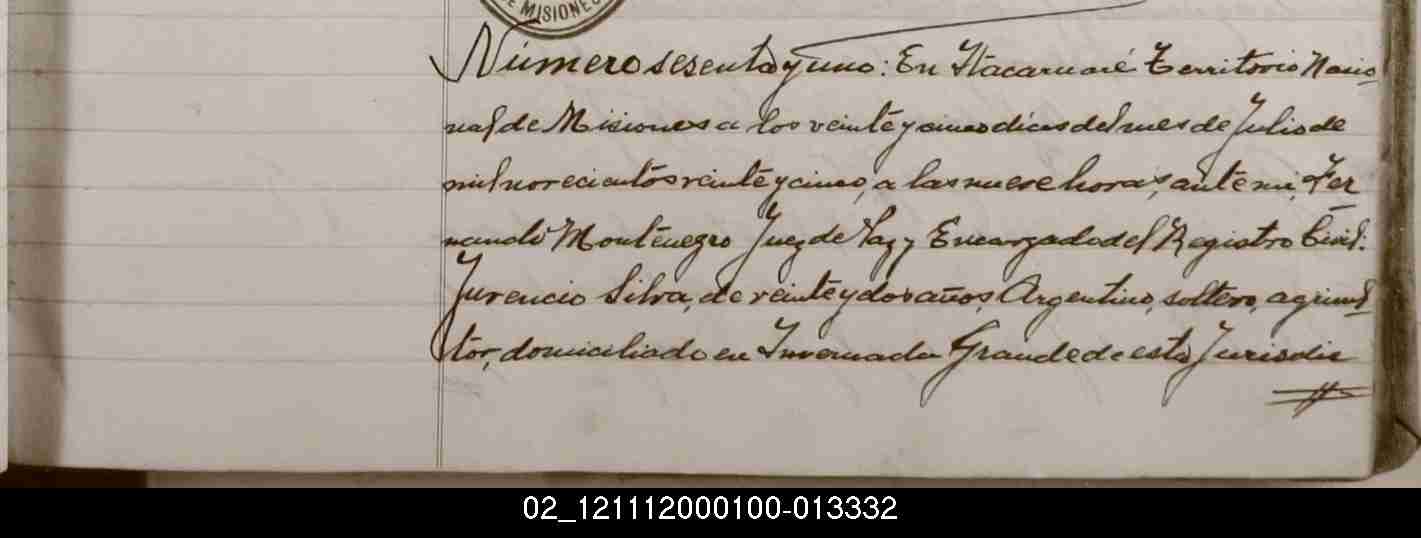 DE MISIONES
Número sesenta y uno: En Itacaruaré Territorio Nacio
nal de Misiones a los veinte y cinco dias del mes de Julio de
mil novecientos veinte y cinco, a las nueve horas, ante mi, Fer
nando Montenegro Juez de Paz y Encargado del Registro Civil:
Juvencio Silva, de veinte y dos años, Argentino, soltero, agricul
tor, domiciliado en Invernada Grande de esta Jurisdic
02_121112000100-013332